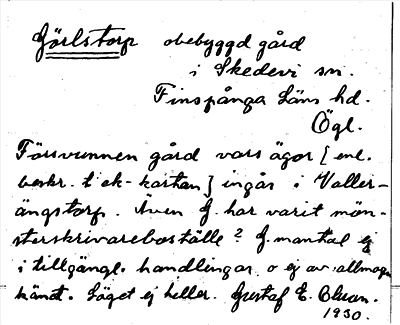 Görlstorp obebyggd gård
i Skedevi sn.
Finspånga Läns hd.
Ögl.
Försvunnen gård vars ägor [enl.
beskr. t. ek-kartan] ingår i Valler-
ängstorp. Även G. har varit mön-
sterskrivareboställe? G. mantal ej
i tillgängl. handlingar o ej av allmogen
känt. Läget ej heller. Gustaf E. Olsson.
1930.